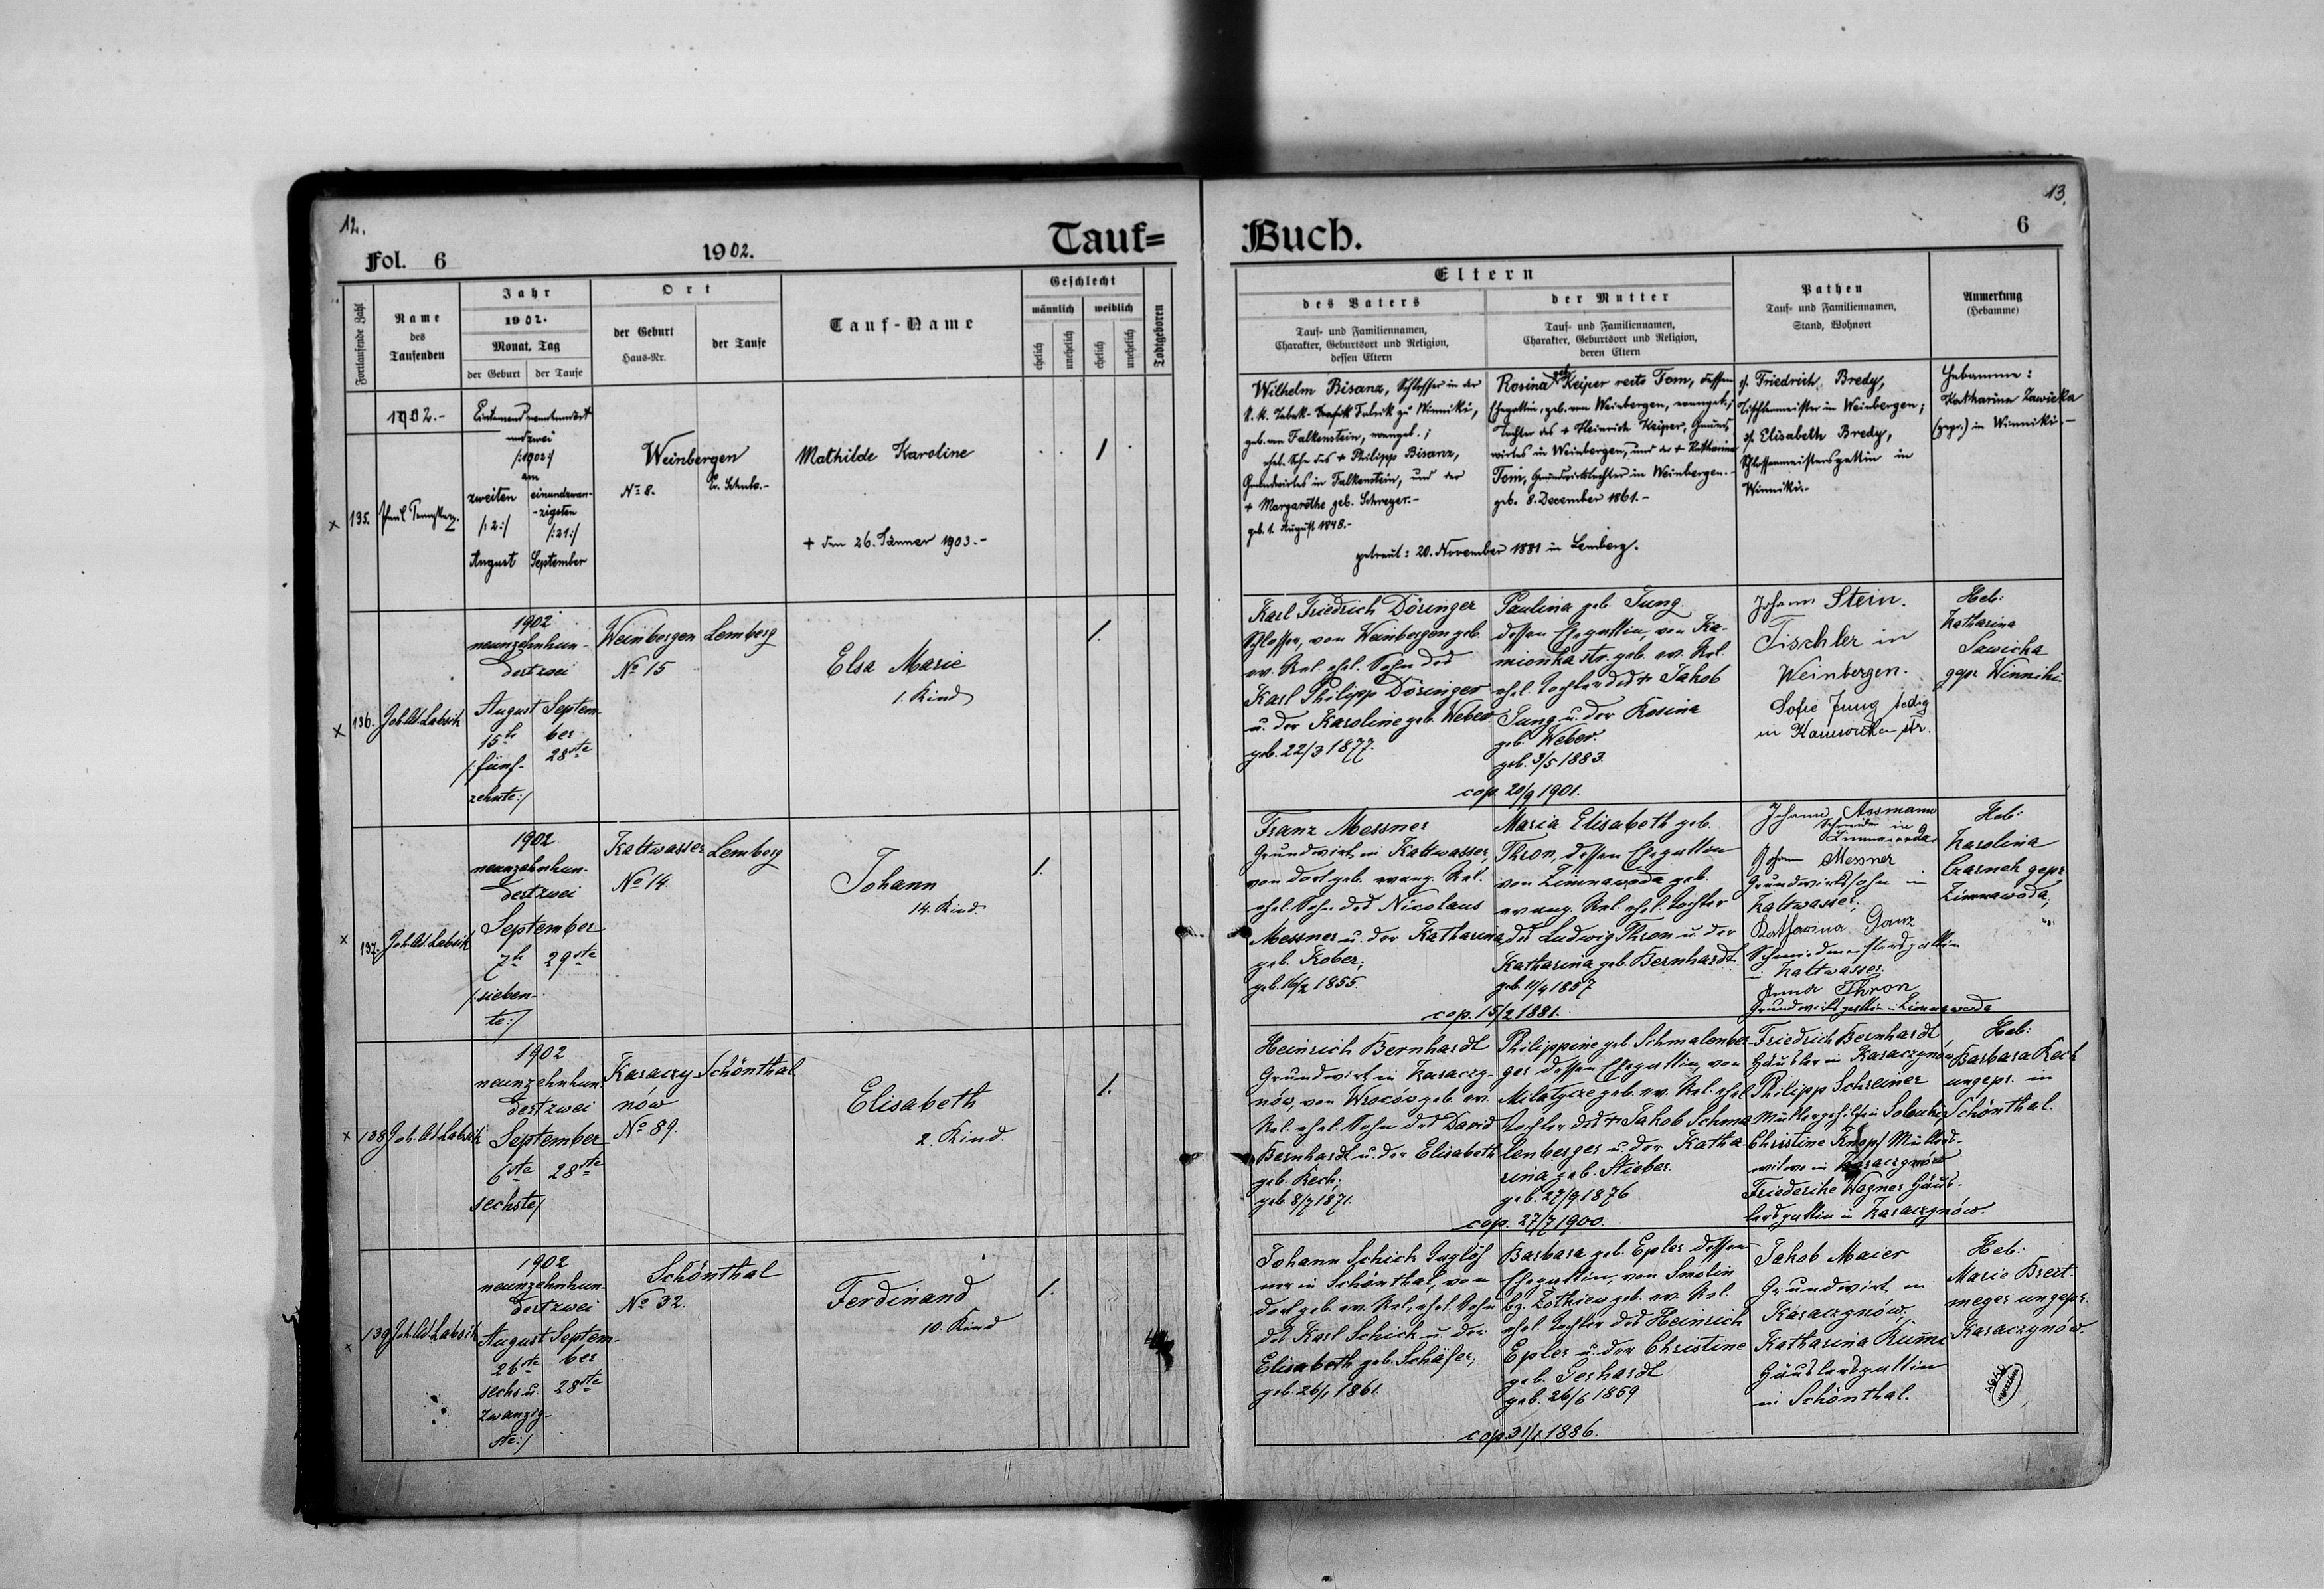 12.
13.
Fol. 6
1902.
Tauf=
Buch.
6
Fortlaufende Zahl
Name
des
Taufenden
Jahr
1902.
Monat, Tag
der Geburt
der Taufe
Ort
der Geburt
Haus-Nr.
der Taufe
Tauf-Name
Geschlecht
männlich
weiblich
ehelich
unehelich
ehelich
unehelich
Todtgeboren
Eltern
des Vaters
Tauf- und Familiennamen,
Charakter, Geburtsort und Religion,
dessen Eltern
der Mutter
Tauf- und Familiennamen,
Charakter, Geburtsort und Religion,
deren Eltern
Pathen
Tauf- und Familiennamen,
Stand, Wohnort
Anmerkung
(Hebamme)
1902.-
Eintausendneunhundert
und zwei
/:1902:/
am
x 135.
zweiten
/:2:/
August
einundzwan-
-zigsten
/:21:/
September
Weinbergen
No 8.
Ev. Schule.-
Mathilde Karoline
+ den 26. Jänner 1903.-
Wilhelm Bisanz, Schlosser in der
K. K. Tabak- Fabrik zu Winniki,
geb. von Falkenstein, evangel.;
ehel. Sohn des + Philipp Bisanz,
Grundwirtes in Falkenstein, und der
+ Margarethe geb. Schreyer.-
geb. 1. August 1848.-
Rosina geb. Keiper recte Tom, dessen
Ehegattin, geb. von Weinbergen, evangel.;
Tochter des + Heinrich Keiper, Grund-
wirtes in Weinbergen, und der + Katharina
Tom, Grundwirtstochter in Weinbergen.-
geb. 8. December 1861.-
getraut: 20. November 1881 in Lemberg.
Friedrich Bredy,
Tischlermeister in Weinbergen;
Elisabeth Bredy,
Schlossermeistersgattin in
Winniki.-
Hebamme:
Katharina Zawicka
(gepr.) in Winniki.-
x 136. Joh. Ad. Labsik
1902
neunzehnhun-
dertzwei
August Septem-
ber
15te
28ste
/:fünf-
zehnte:/
Weinbergen
No 15
Lemberg
Elsa Marie
1. Kind
1.
Karl Friedrich Döringer
Schlosser, von Weinbergen geb.
ev. Rel. ehel. Sohn des
Karl Philipp Döringer
u. der Karoline geb. Weber.
geb. 22/3 1877.
Paulina geb. Jung
dessen Ehegattin, von Ka-
mionka str. geb. ev. Rel.
ehel. Tochter des + Jakob
Jung u. der Rosina
geb. Weber.
geb. 3/5 1883.
cop. 20/9 1901.
Johann Stein.
Tischler in
Weinbergen.
Sofie Jung ledig
in Kamionka str.
Heb:
Katharina
Sawicka
gepr. Winniki.
x 137. Joh. Ad. Labsik
1902
neunzehnhun-
dertzwei
September
7te 29ste
/:sieben-
te:/
Kaltwasser
No 14.
Lemberg
Johann
14. Kind.
1.
Franz Messner
Grundwirt in Kaltwasser,
von dort geb. evang. Rel.
ehel. Sohn des Nicolaus
Messner u. der Katharina
geb. Kober;
geb. 16/2 1855.
Maria Elisabeth geb.
Thron, dessen Ehegattin
von Zimnawoda geb.
evang. Rel. ehel. Tochter
des Ludwig Thron u. der
Katharina geb. Bernhardt.
geb. 11/4 1857
cop. 15/2 1881.
Johann Assmann
Schneider in
Zimnawoda
Johann Messner
Grundwirtssohn in
Kaltwasser;
Katharina Ganz
Schmiedmeistersgattin
in Kaltwasser.
Anna Thron
Grundwirtsgattin in Zimnawoda
Heb:
Karolina
Czarnek gepr.
Zimnawoda,
x 138 Joh. Ad. Labsik
1902
neunzehnhun-
dertzwei
September
6ste 28ste
sechste/
Karaczy-
nów
No 89.
Schönthal
Elisabeth
2. Kind.
1.
Heinrich Bernhardt
Grundwirt in Karaczy-
nów, von Wroców geb. ev.
Rel. ehel. Sohn des David
Bernhardt u. der Elisabeth
geb. Kech;
geb. 8/7 1871.
Philippine geb. Schmalenber-
ger dessen Ehegattin, von
Milatycze geb. ev. Rel. ehel
Tochter des + Jakob Schma-
lenberger u. der Katha-
rina geb. Stieber.
geb. 27/9 1876
cop. 27/7 1900.
Friedrich Bernhardt
Häusler in Karaczynów
Philipp Schreiner
Müllergehilfe in
Christine Knopf Müllers-
witwe in Karaczynów
Friederike Wagner Häus-
lersgattin in Karaczynów.
Heb:
Barbara Kech
ungepr. in
Schönthal.
x 139 Joh. Ad. Labsik
1902
neunzehnhun-
dertzwei
August Septem-
ber
26ste
28ste
sechs u.
zwanzig-
ste:/
Schönthal
No 32.
Ferdinand
10. Kind
1.
Johann Schick Taglöh-
ner in Schönthal, von
dort geb. ev. Rel., ehel. Sohn
des Karl Schick u. der
Elisabeth geb. Schäfer;
geb. 26/1 1861.
Barbara geb. Epler dessen
Ehegattin, von Smolin
bz. Żółkiew geb. ev. Rel.
ehel. Tochter des Heinrich
Epler u. der Christine
geb. Gerhardt
geb. 26/6 1869
cop. 31/1 1886.
Jakob Maier
Grundwirt in
Karaczynów;
Katharina Kumm
Häuslersgattin
in Schönthal.
Heb:
Marie Breit-
meyer ungepr.
Karaczynów.